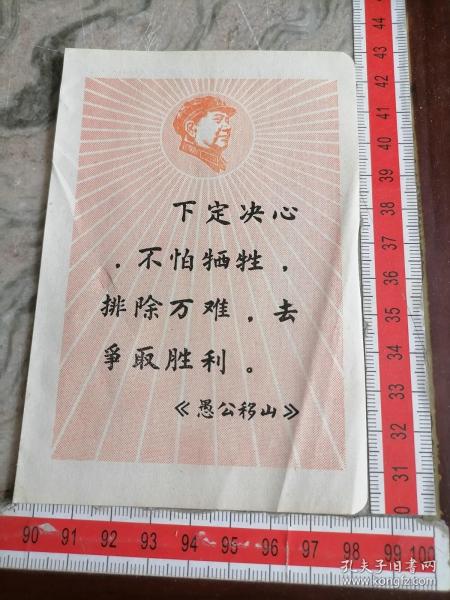 下定决心
，不怕牺牲，
排除万难，去
争取胜利。
《愚公移山》
44
43
42
41
40
39
38
37
36
35
34
33
32
31
90 91 92 93 94 95 96 97 98 99 100
孔夫子旧书网
www.kongfz.com